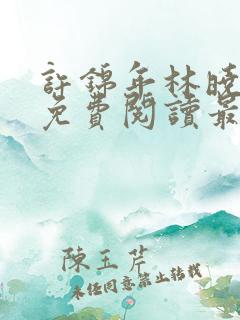 許錦年林曉
免費閱讀最
陳玉芹
未经同意禁止转载